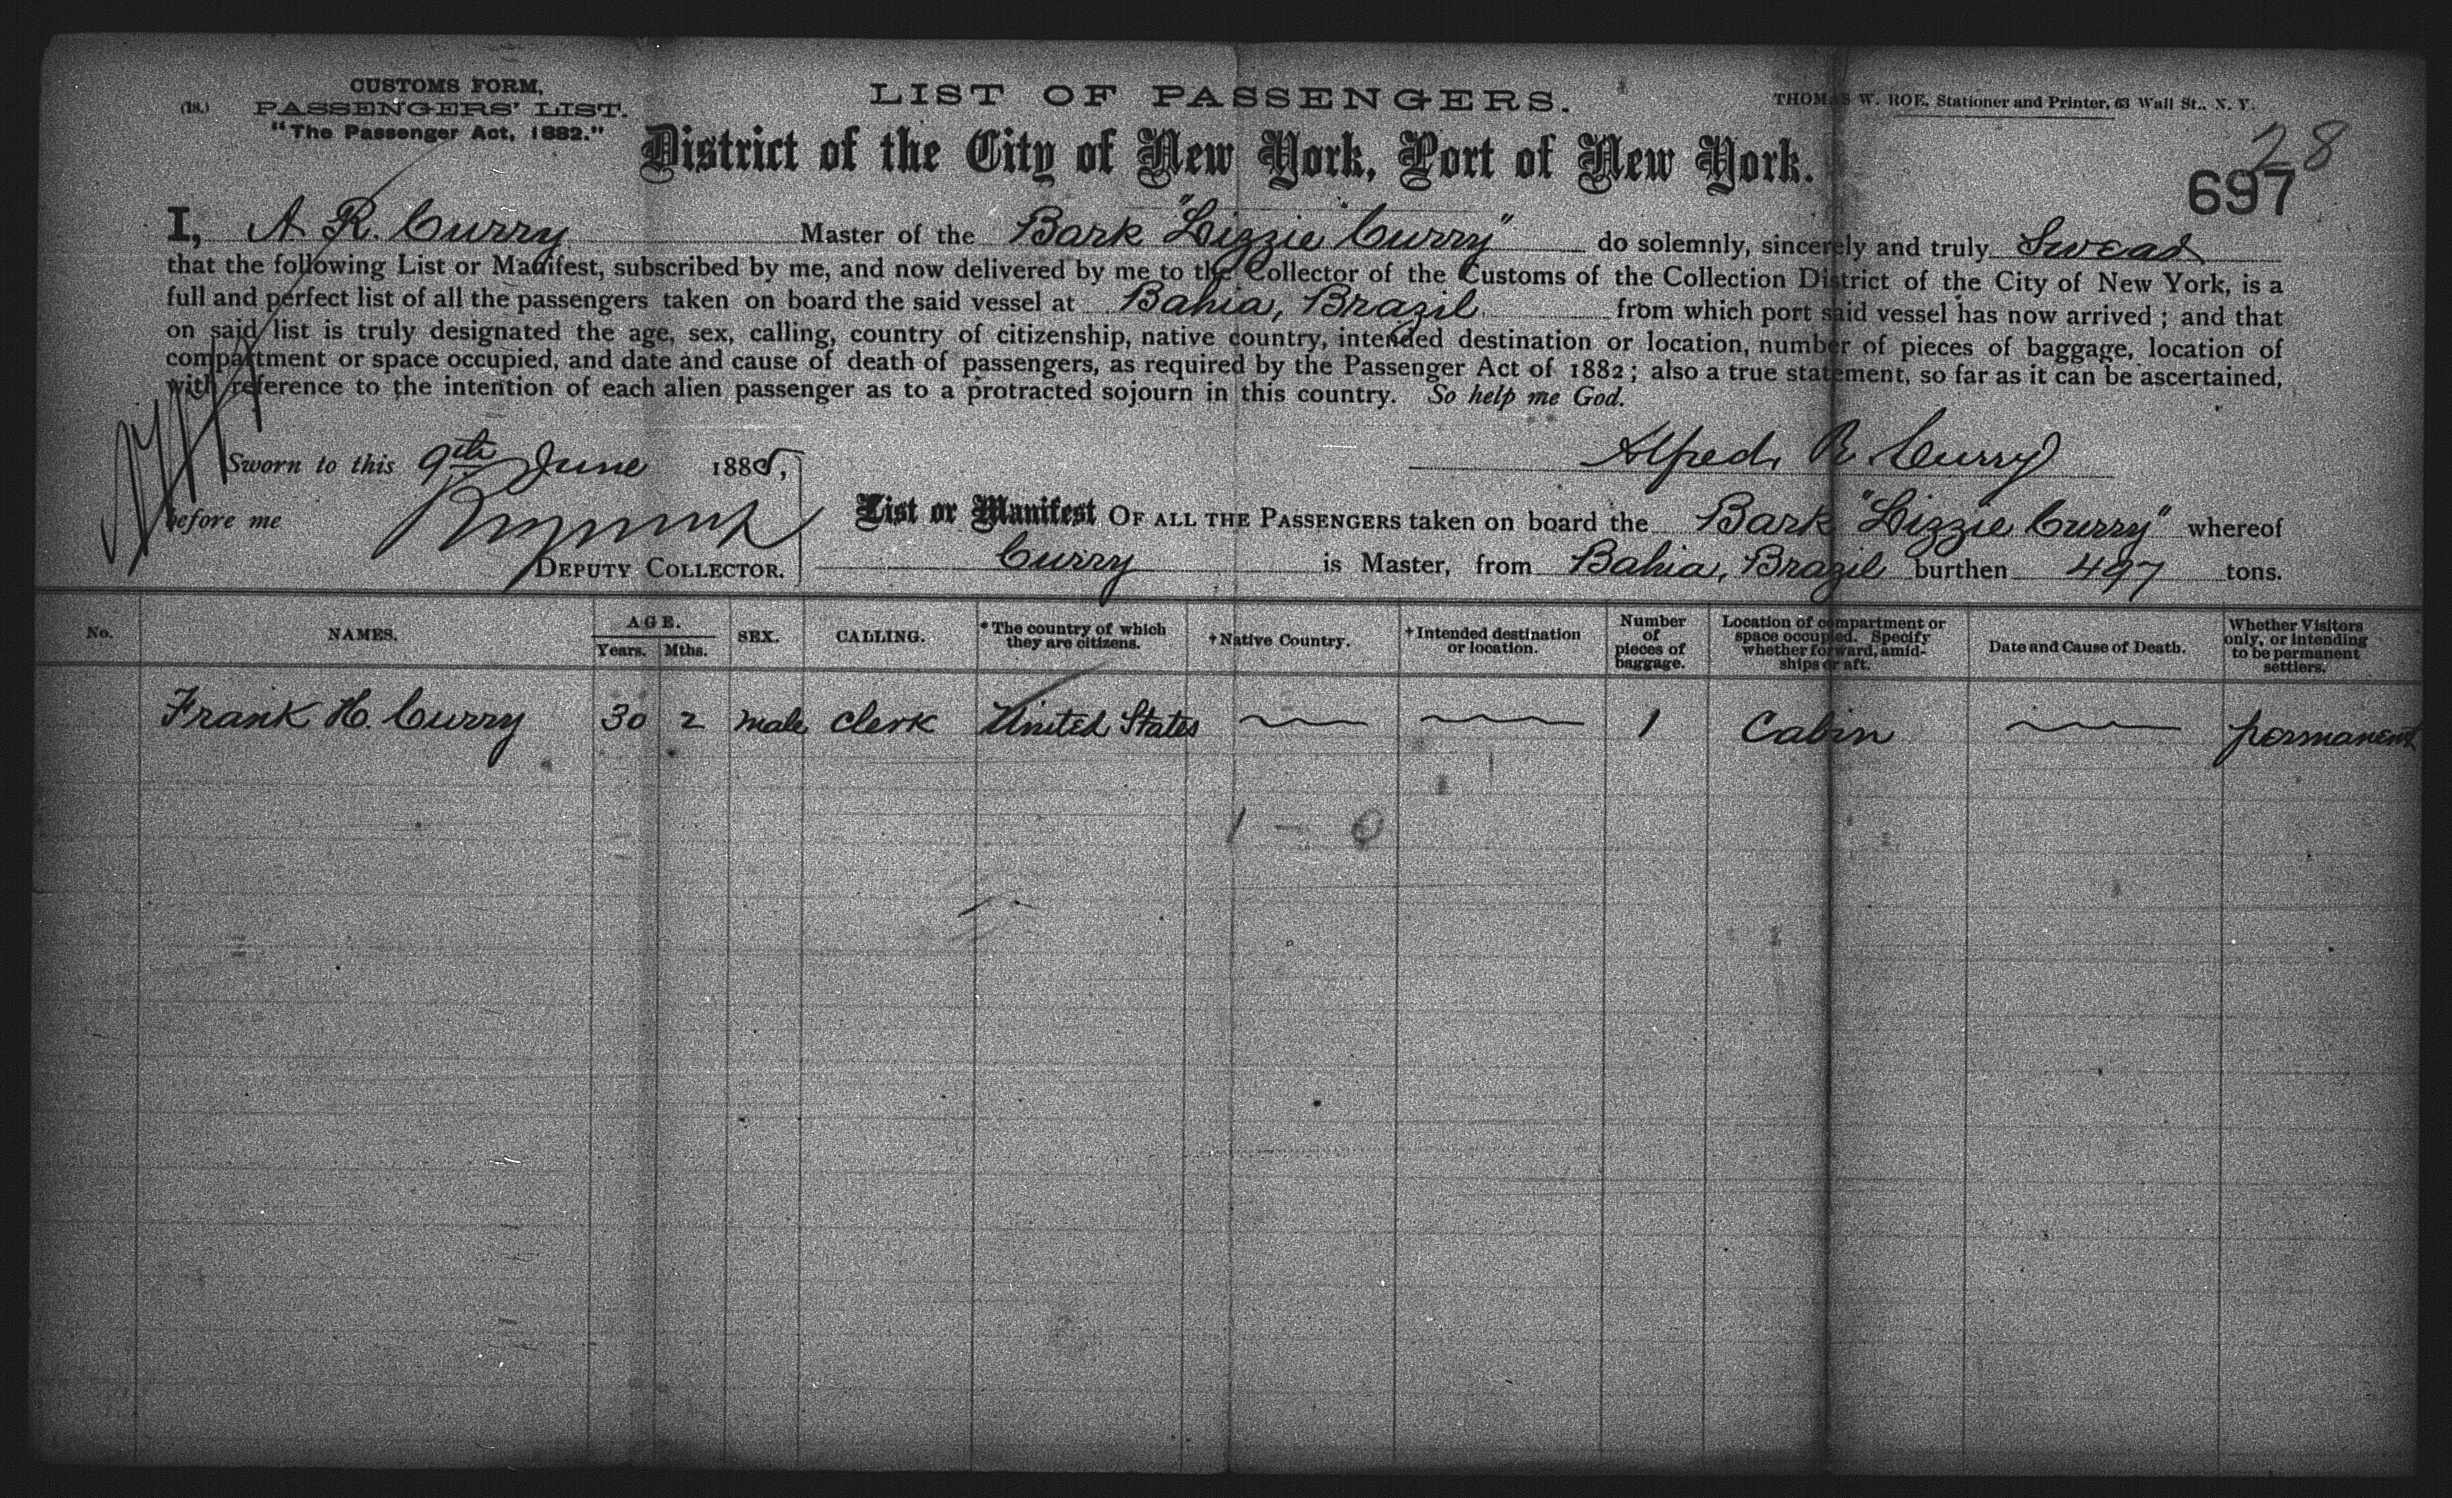 CUSTOMS FORM,
(18.) PASSENGERS' LIST.
"The Passenger Act, 1882."
LIST OF PASSENGERS.
THOMAS W. ROE, Stationer and Printer, 63 Wall St., N. Y.
28
District of the City of New York, Port of New York.
697
I, A R. Curry Master of the Bark "Lizzie Curry" do solemnly, sincerely and truly Swear
that the following List or Manifest, subscribed by me, and now delivered by me to the Collector of the Customs of the Collection District of the City of New York, is a
full and perfect list of all the passengers taken on board the said vessel at Bahia, Brazil from which port said vessel has now arrived; and that
on said list is truly designated the age, sex, calling, country of citizenship, native country, intended destination or location, number of pieces of baggage, location of
compartment or space occupied, and date and cause of death of passengers, as required by the Passenger Act of 1882; also a true statement, so far as it can be ascertained,
with reference to the intention of each alien passenger as to a protracted sojourn in this country. So help me God.
Sworn to this 9th June 1885,
Alfred R. Curry
before me
DEPUTY COLLECTOR.
List or Manifest OF ALL THE PASSENGERS taken on board the Bark "Lizzie Curry" whereof
Curry is Master, from Bahia, Brazil burthen 497 tons.
No. NAMES. AGE. Years. Mths. SEX. CALLING. *The country of which they are citizens. †Native Country. †Intended destination or location. Number of pieces of baggage. Location of compartment or space occupied. Specify whether forward, amidships or aft. Date and Cause of Death. Whether Visitors only, or intending to be permanent settlers.
Frank H. Curry 30 2 male clerk United States 1 Cabin permanent
1 - 0